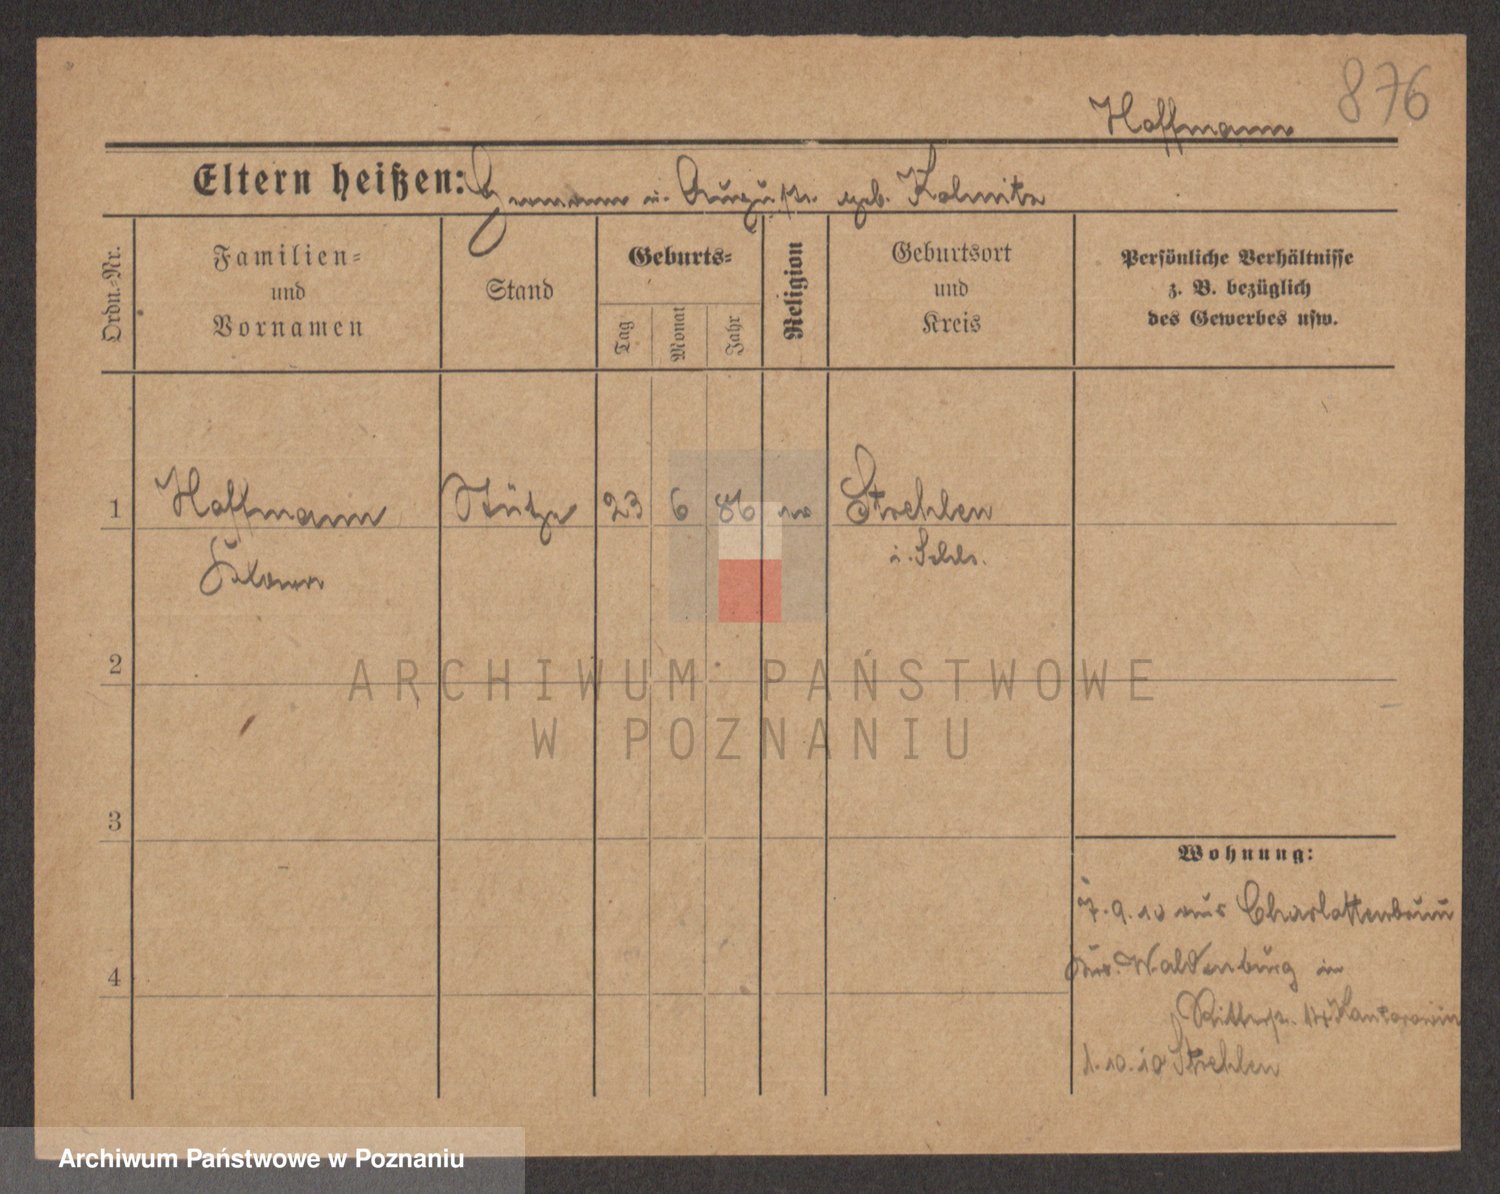 876
Hoffmann
Eltern heißen: Hermann u. Auguste geb. Kolmitz
Ordn.-Nr.
Familien-
und
Vornamen
Stand
Geburts-
Tag
Monat
Jahr
Religion
Geburtsort
und
Kreis
Persönliche Verhältnisse
z. B. bezüglich
des Gewerbes usw.
1 Hoffmann Stütze 23 6 86 Strehlen
i. Schls.
2
3
4
Wohnung:
7.9.10 aus Charlottenbrunn
Waldenburg
Ritterstr. Kantorowicz
1.10.10 Strehlen
ARCHIWUM PAŃSTWOWE
W POZNANIU
Archiwum Państwowe w Poznaniu